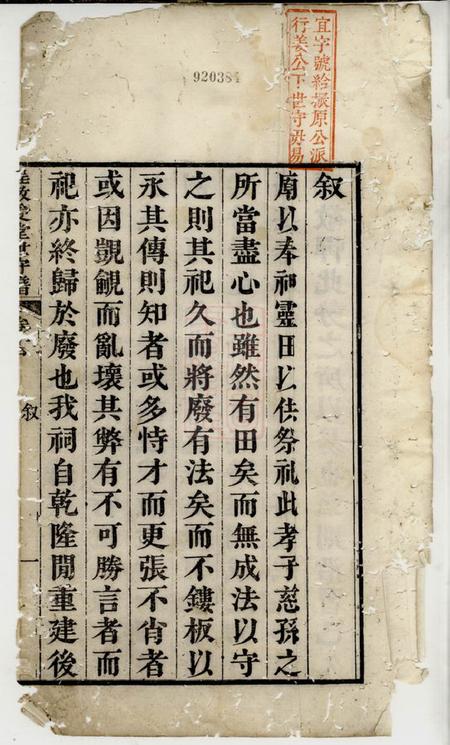 920384
宜字號給振原公派
行姜公下世守毋易
叙
廟以奉神靈田以供祭祀此孝子慈孫之
所當盡心也雖然有田矣而無成法以守
之則其祀久而將廢有法矣而不鏤板以
永其傳則知者或多恃才而更張不肖者
或因覬覦而亂壞其弊有不可勝言者而
祀亦終歸於廢也我祠自乾隆閒重建後
堂世守譜
叙
一